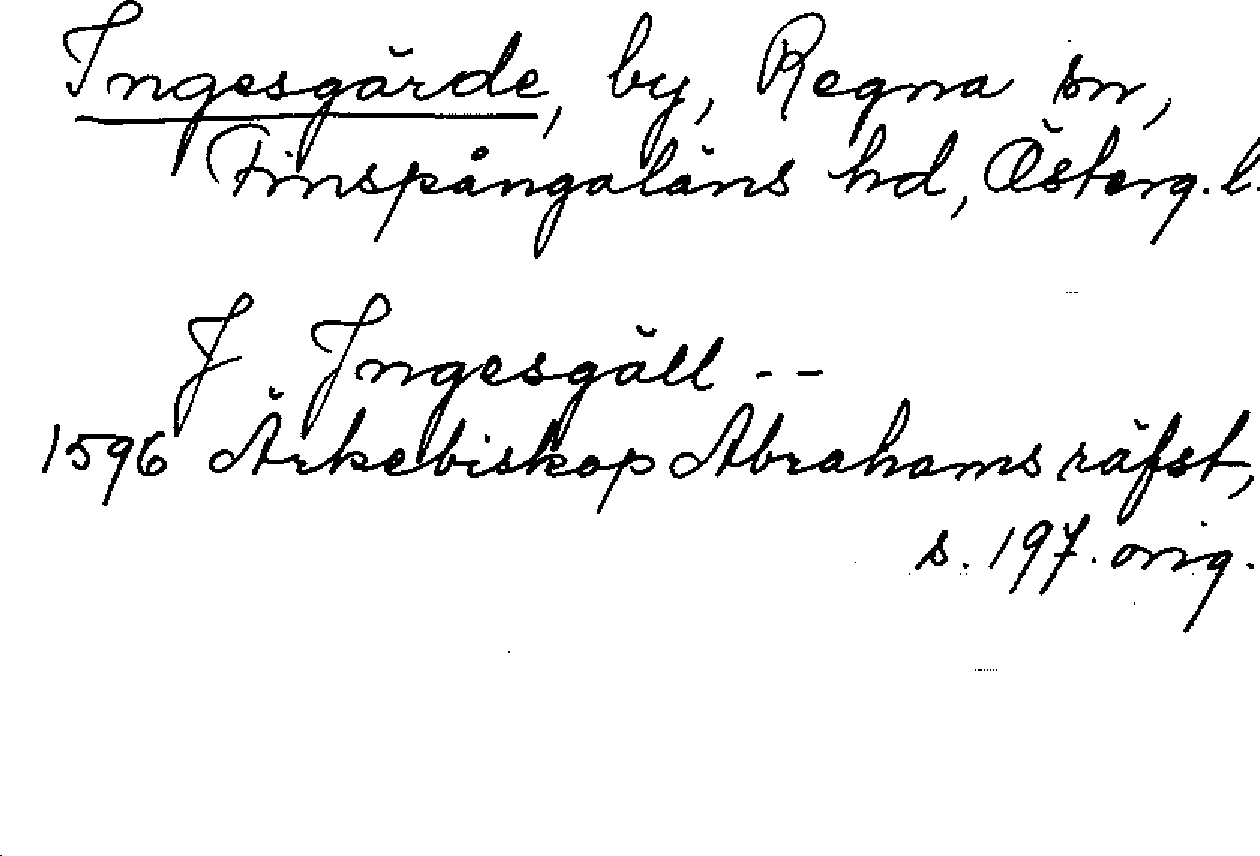 Ingesgärde, by, Regna sn,
Finspångaläns hd, Österg. l.
J Ingesgäll --
1596 Ärkebiskop Abrahams räfst,
s. 197. orig.